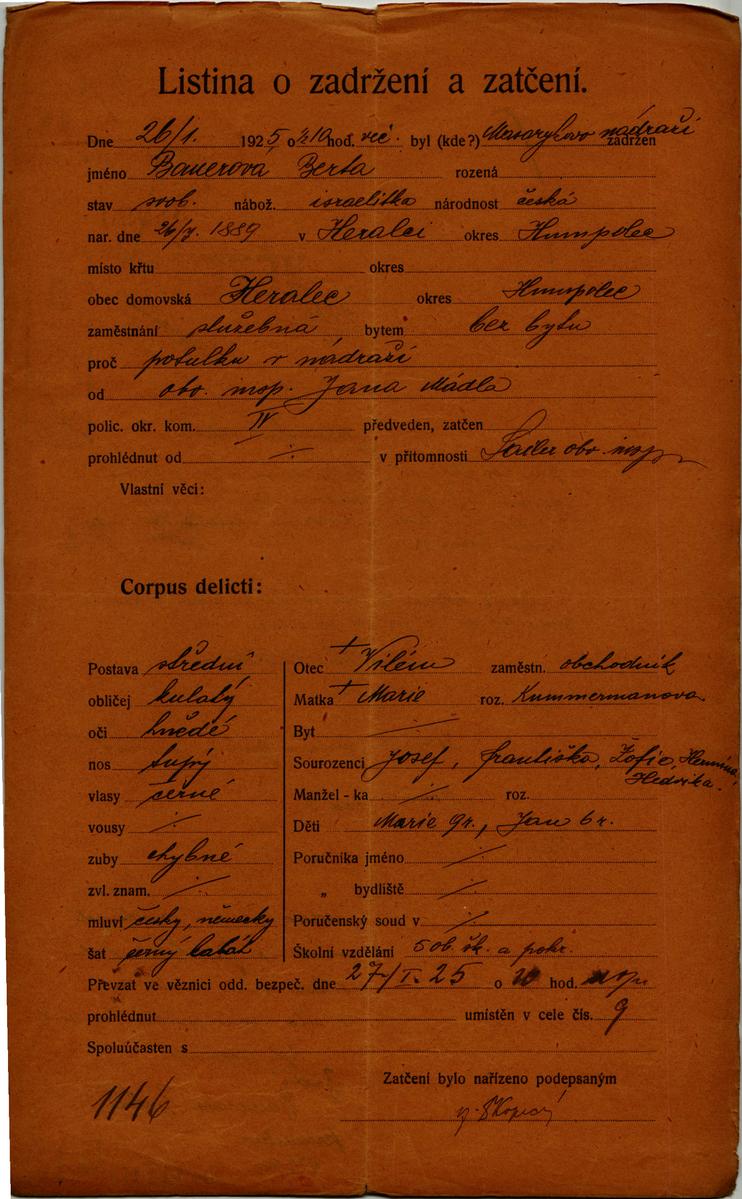 Listina o zadržení a zatčení.
Dne 26/1. 1925 o ½10 hod. več. byl (kde?) Masarykovo nádraží zadržen
jméno Bauerová Berta rozená
stav svob. nábož. israelitka národnost česká
nar. dne 26/7. 1889 v Heralci okres Humpolec
místo křtu okres
obec domovská Heralec okres Humpolec
zaměstnání služebná bytem bez bytu
proč potulku v nádraží
od obv. insp. Jana Mádla
polic. okr. kom. IV předveden, zatčen
prohlédnut od ./. v přítomnosti obv. insp.
Vlastní věci:
Corpus delicti:
Postava střední
obličej kulatý
oči hnědé
nos tupý
vlasy černé
vousy ./.
zuby chybné
zvl. znam. ./.
mluví česky, německy
šat černý kabát
Otec + Vilém zaměstn. obchodník
Matka + Marie roz. Kummermanova
Byt
Sourozenci Josef, Františka, Žofie, Hermína, Hedvika.
Manžel-ka ./. roz.
Děti Marie 9r., Jan 6r.
Poručníka jméno ./.
„ bydliště ./.
Poručenský soud v ./.
Školní vzdělání 5 ob. šk. a pokr.
Převzat ve věznici odd. bezpeč. dne 27/I. 25 o 10 hod.
prohlédnut umístěn v cele čís. 9
Spoluúčasten s
Zatčení bylo nařízeno podepsaným
1146